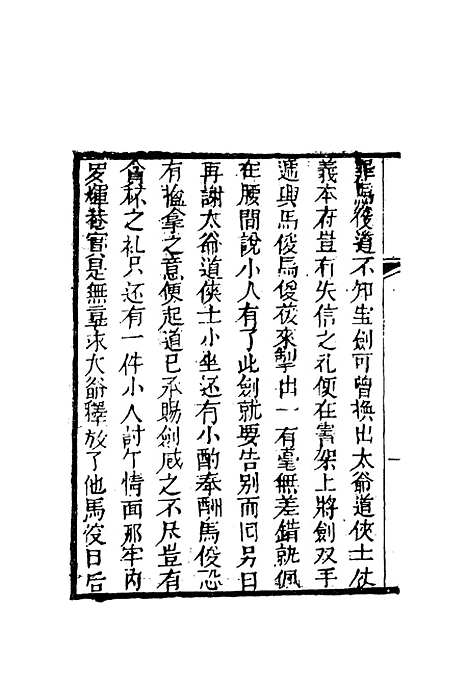 罪馬俊道不知宝劍可曾換出太爺道俠士仗
義本府豈有失信之礼便在書架上將劍双手
遞與馬俊馬俊接來掣出一看毫無差錯就佩
在腰間說小人有了此劍就要告別而回另日
再謝太爺道俠士小坐还有小酌奉酬馬俊恐
有搵拿之意便起道已承賜劍感之不尽豈有
貪杯之礼只还有一件小人討个情面那牢內
罗輝菴官是無辜求太爺釋放了他馬俊日后